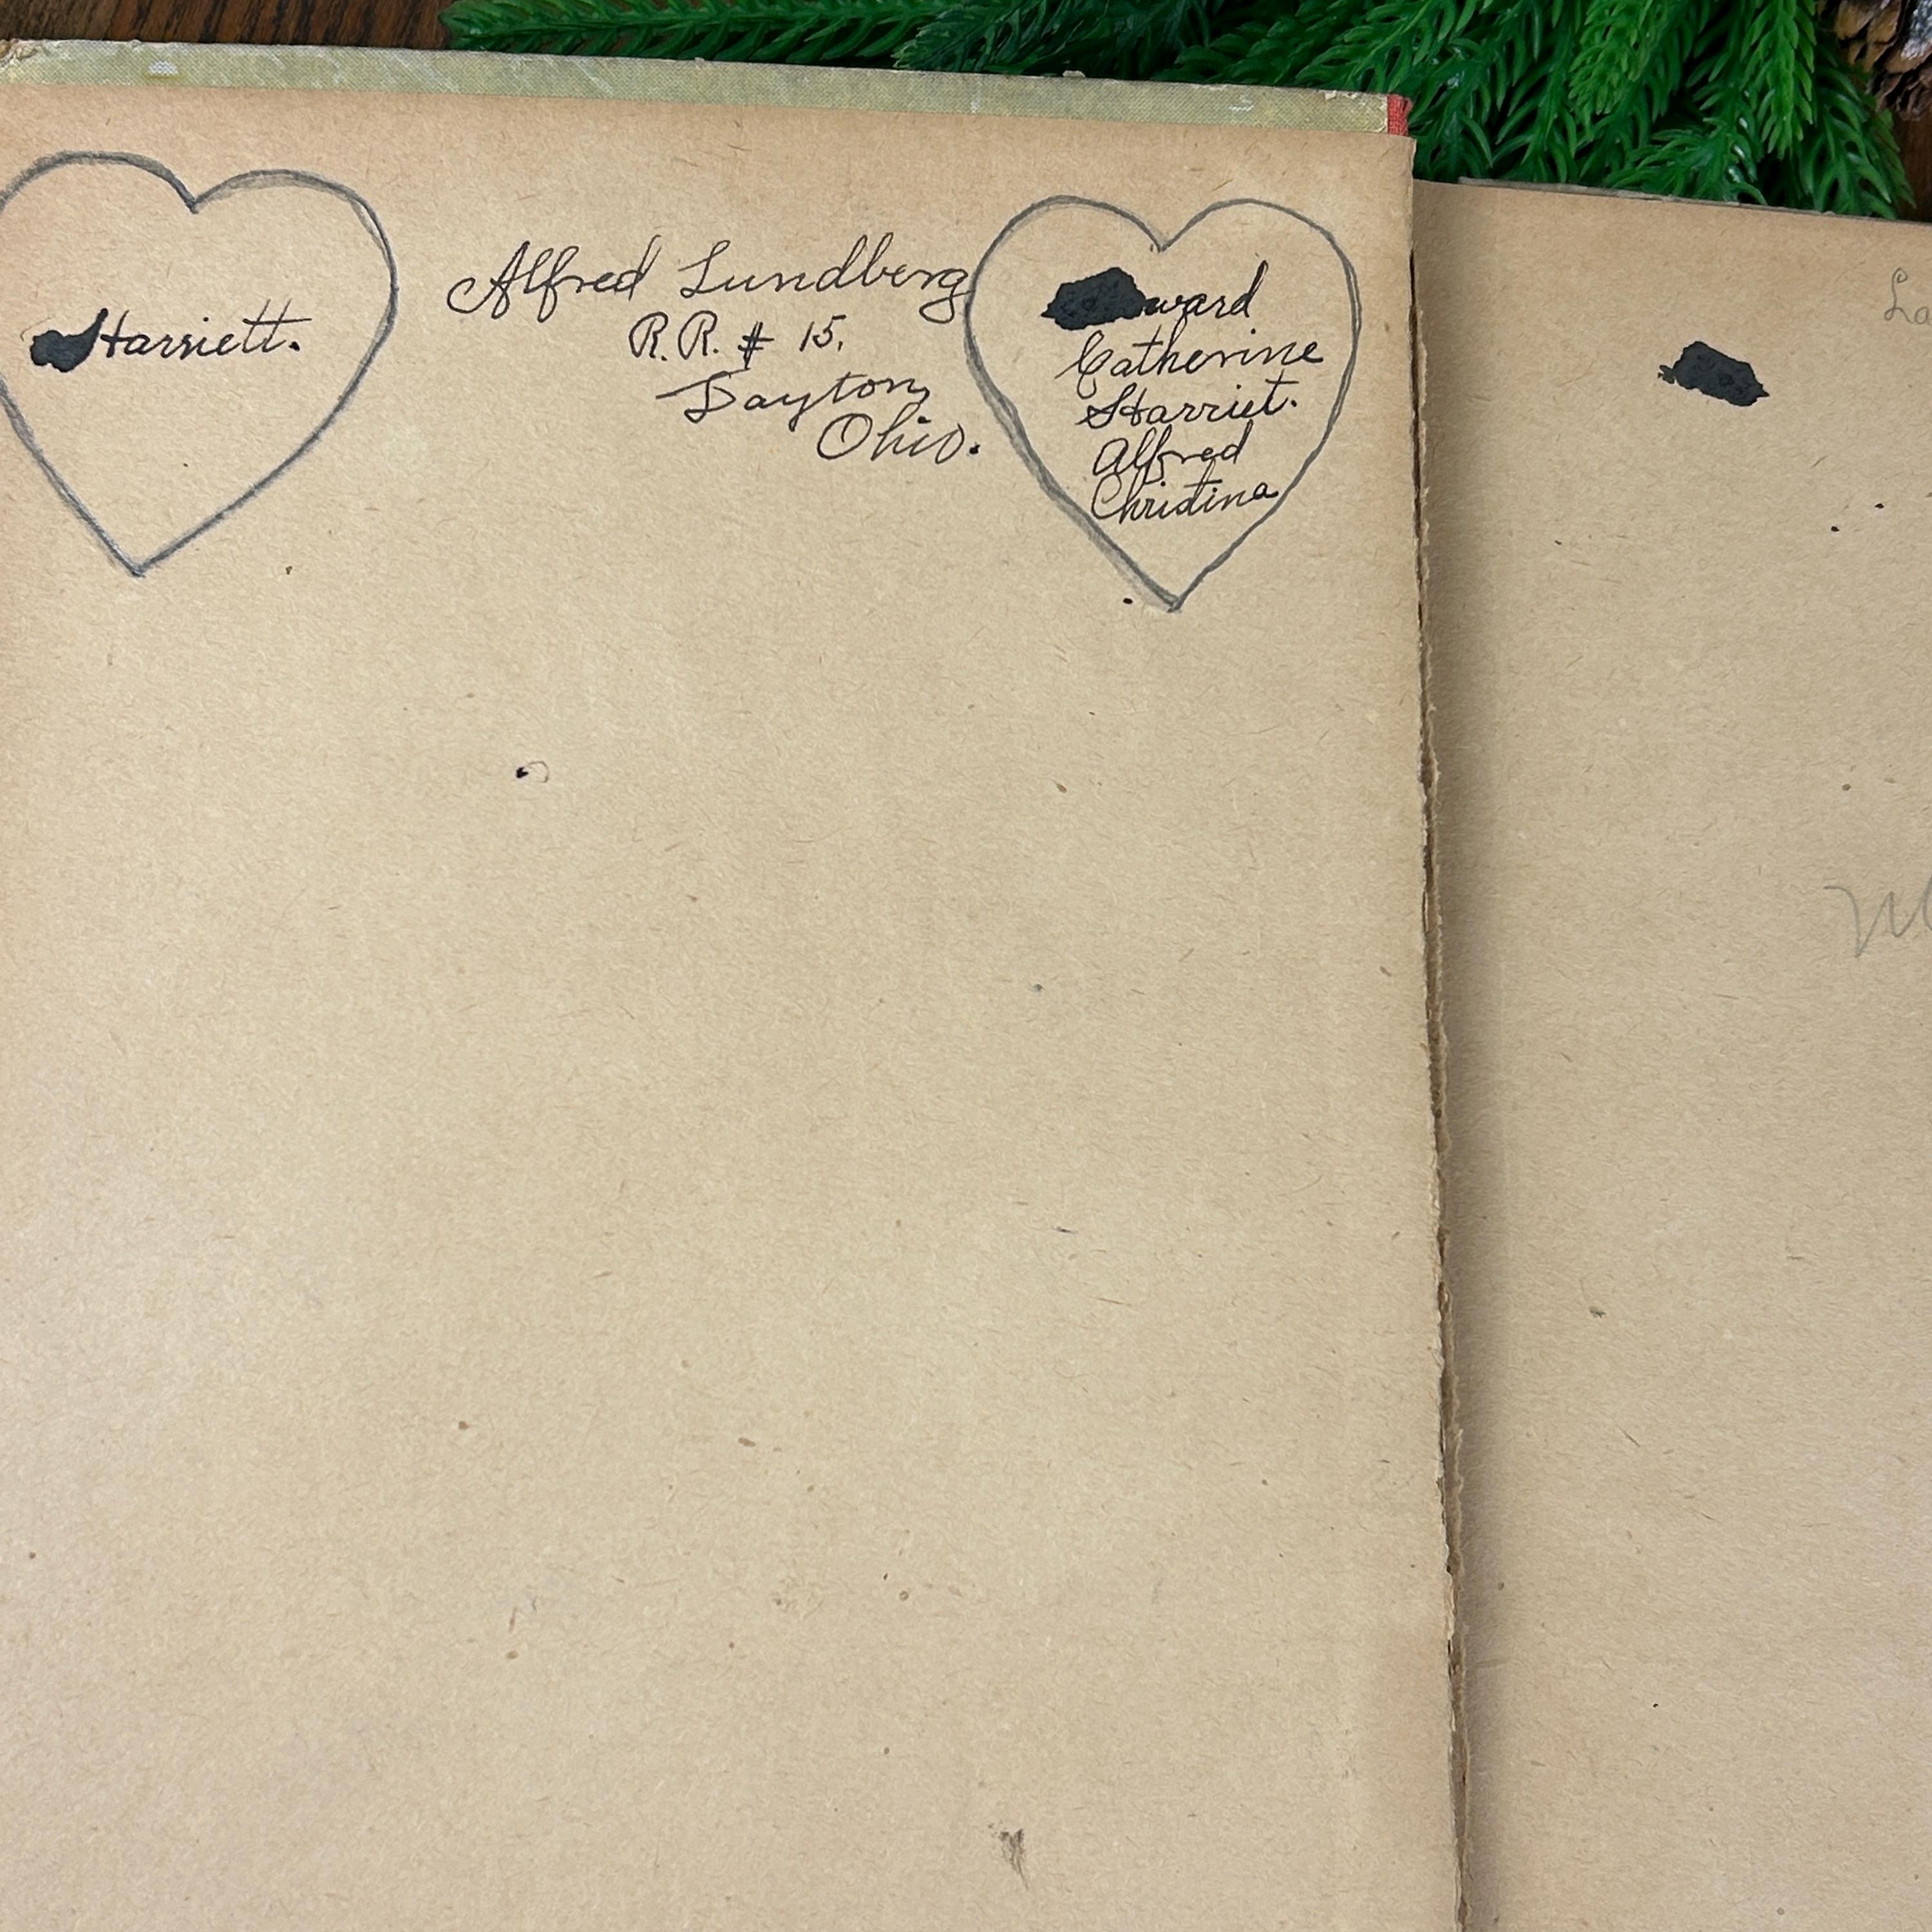 Harriett.
Alfred Lundberg
R.R. # 15,
Dayton,
Ohio.
Catherine
Harriet.
Alfred
Christina